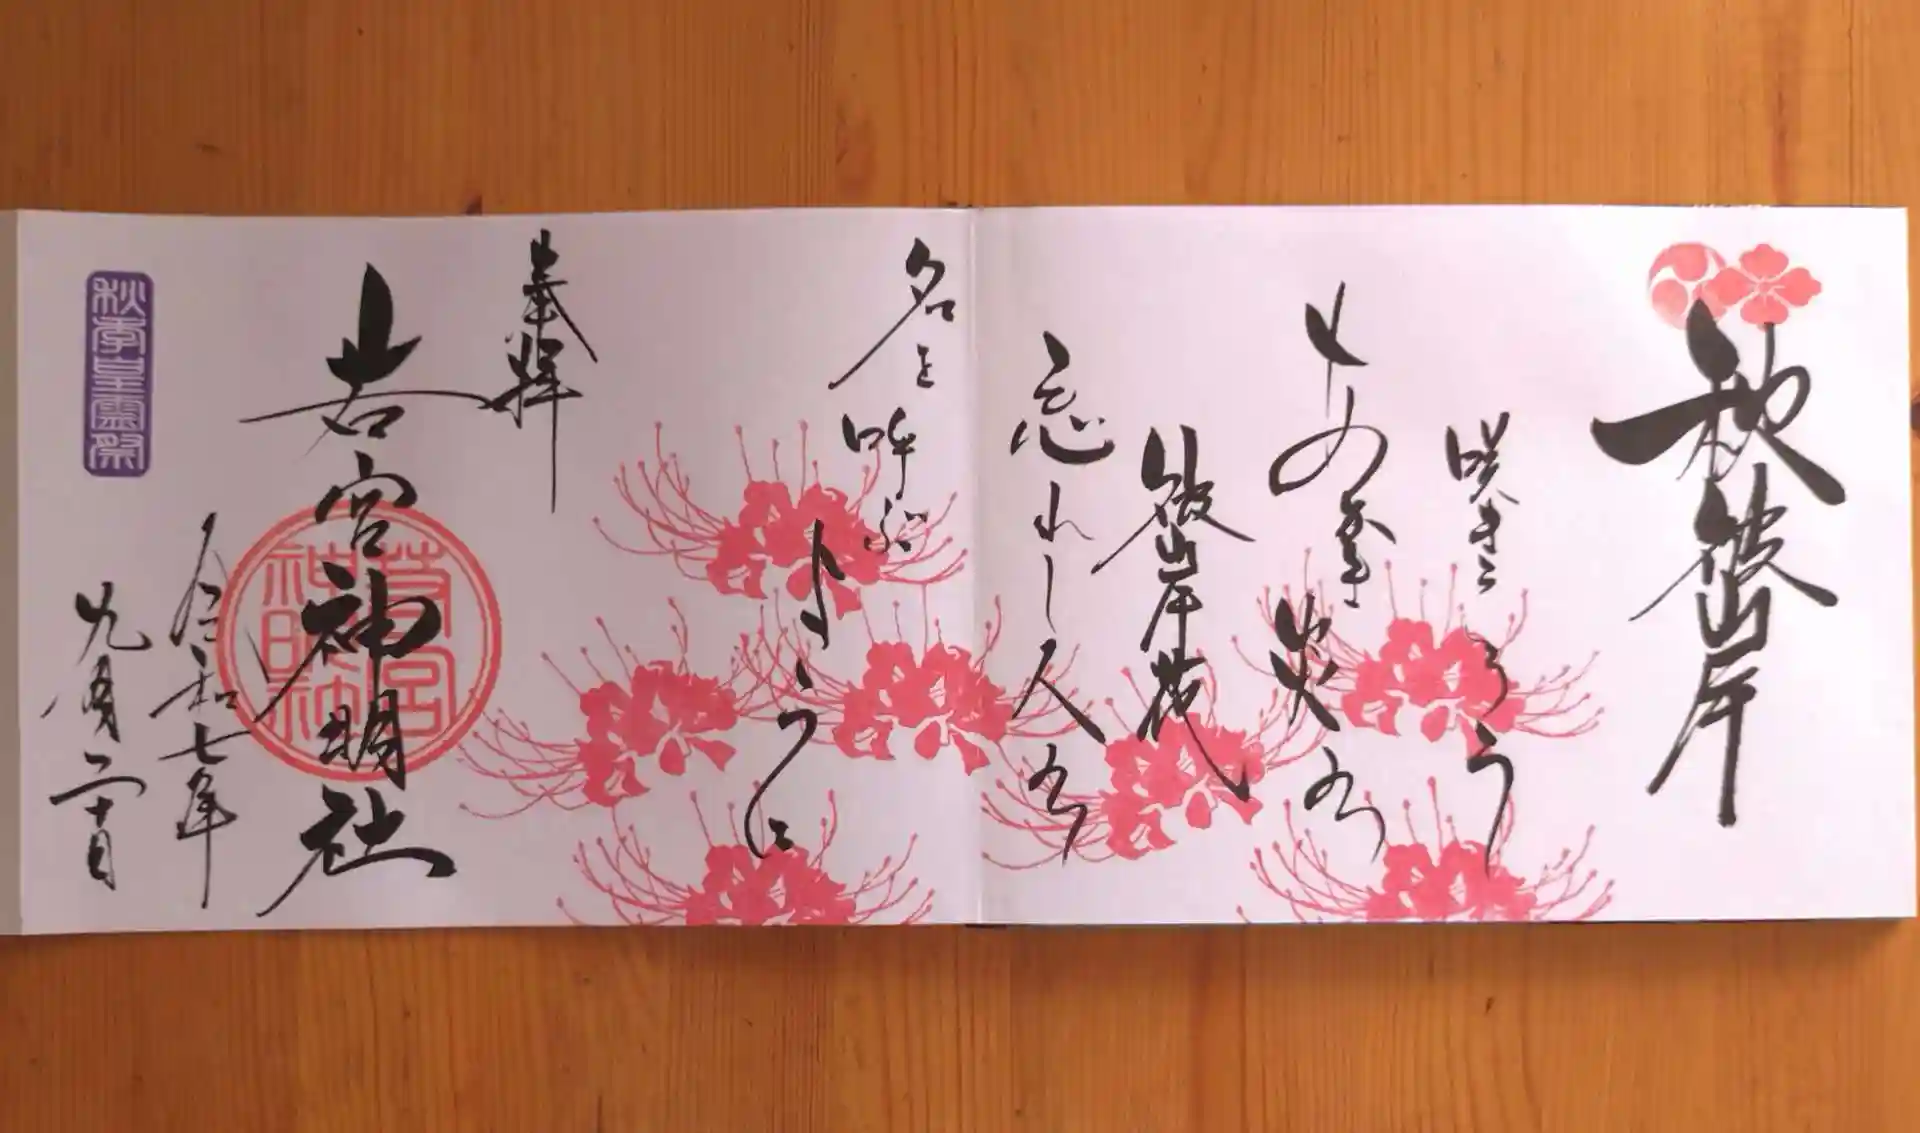 秋彼岸
咲きそろう
火の
彼岸花
忘れし人の
名を呼ぶ
ように
奉拝
若宮神明社
若宮
神明社
令和七年
九月二十日
秋季皇霊祭